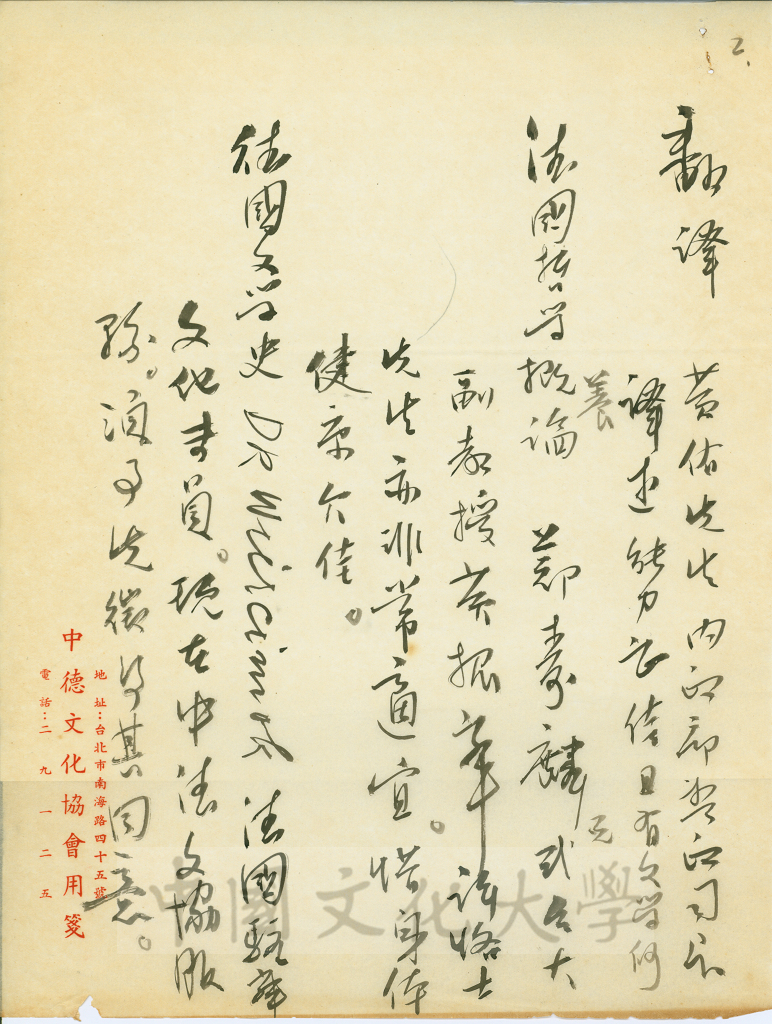 二、
翻譯
黃佑先生 內政部警政司長
譯述能力亦佳且有文學修
養
法國哲學概論 鄭壽麟 或台大
副教授黃振華 許恪士
先生亦非常適宜。惜身体
健康欠佳。
德國文學史 DR 法國駐華
文化專員。現在中法文協服
務。須予先徵得其同意。
中德文化協會用箋
地址：台北市南海路四十五號
電話：二九一二五
中國文化大學